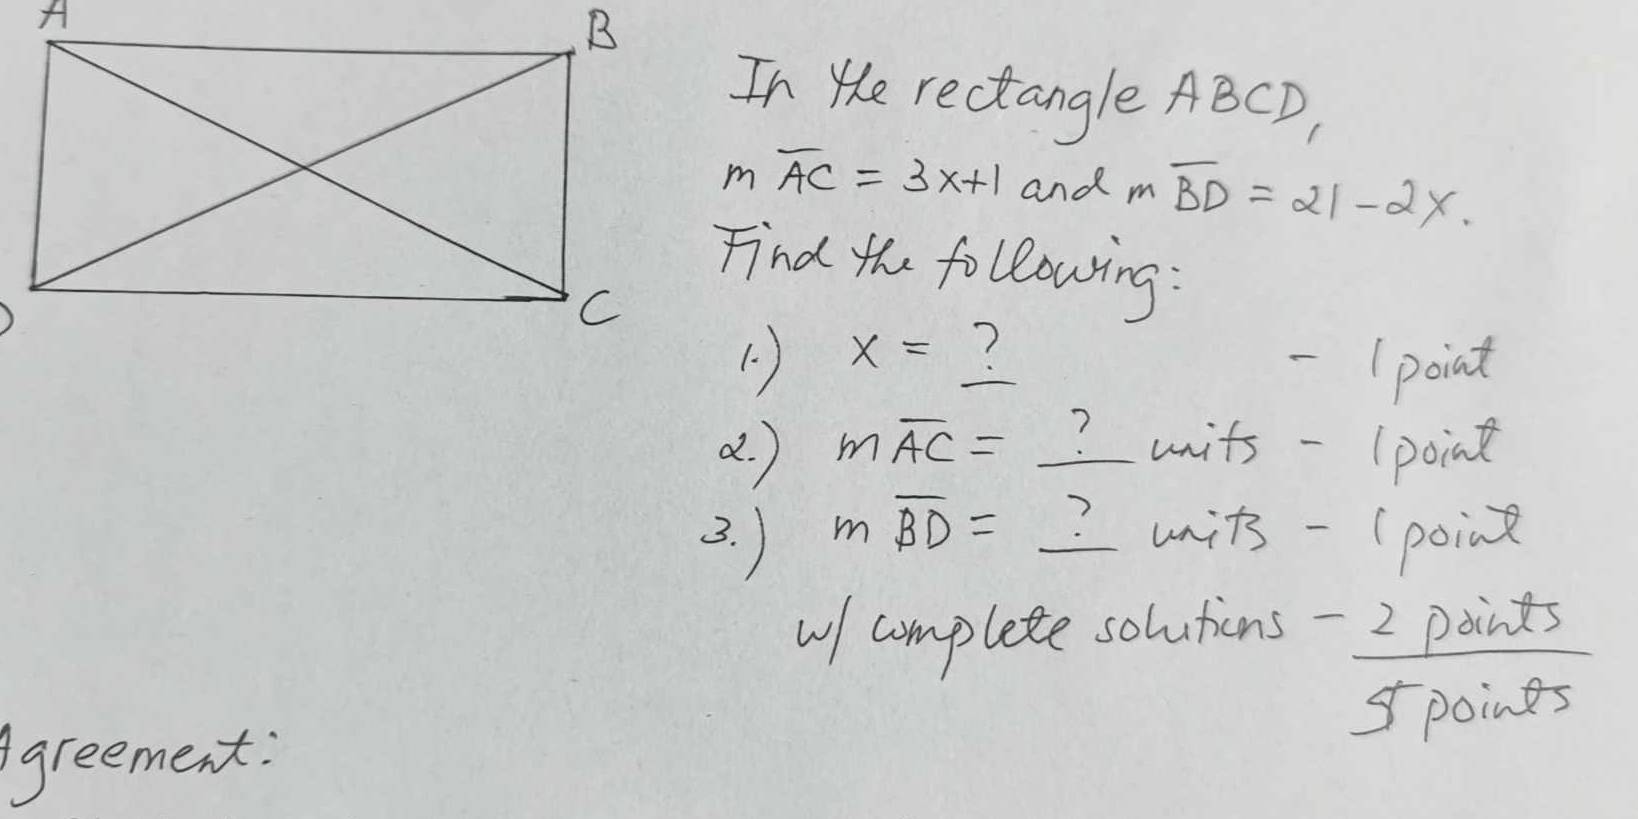 A
B
In the rectangle ABCD,
m AC = 3x+1 and m BD = 21-2x.
Find the following:
D
C
1.) x = ? - 1 point
2.) m AC = ? units - 1 point
3.) m BD = ? units - 1 point
w/ complete solutions - 2 points
5 points
Agreement: